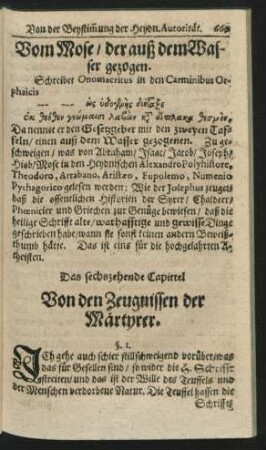 Von der Beystim̃ung der Heydn. Autorität. 669
Vom Mose / der auß dem Was-
ser gezogen.
Schreibet Onomacritus in den Carminibus Or-
phaicis
ὡς ὑδογενὴς διέταξε
Da nennet er den Gesetzgeber mit den zweyen Taf-
feln / einen auß dem Wasser gezogenen. Zu ge-
schweigen / was von Abraham / Isaac / Jacob / Joseph /
Hiob / Mose in den Heydnischen Alexandro Polyhistore,
Theodoro, Arrabano, Aristæo, Eupolemo, Numenio
Pythagorico gelesen werden: Wie der Josephus zeuget /
daß die offentlichen Historien der Syrer / Chaldeer /
Phœnicier und Griechen zur Genüge beweisen / daß die
heilige Schrifft alte / warhafftige und gewisse Dinge
geschrieben habe / wann sie sonst keinen andern Beweiß-
thumb hätte. Das ist eins für die hochgelahrten A-
theisten.
Das sechszehende Capittel
Von den Zeugnissen der
Märtyrer.
§. 1.
ICh gehe auch schier stillschweigend vorüber / was
das für Gesellen sind / so wider die H. Schrifft
gestreiten / und das ist der Wille des Teuffels und
der Menschen verdorbene Natur. Die Teuffel hassen die
Schrifft